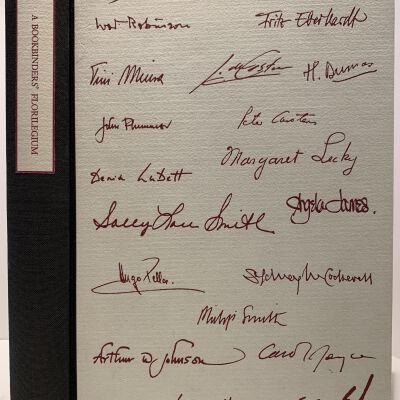 A BOOKBINDERS' FLORILEGIUM
Ivor Robinson
Fritz Eberhardt
Tini Miura
H. Dumas
John Plummer
Peter Carstens
Margaret Lecky
Denise Lubett
Angela James.
Sally Lou Smith
Hugo Peller
Sydney M Cockerell
Philip Smith
Arthur W Johnson
Carol Joyce